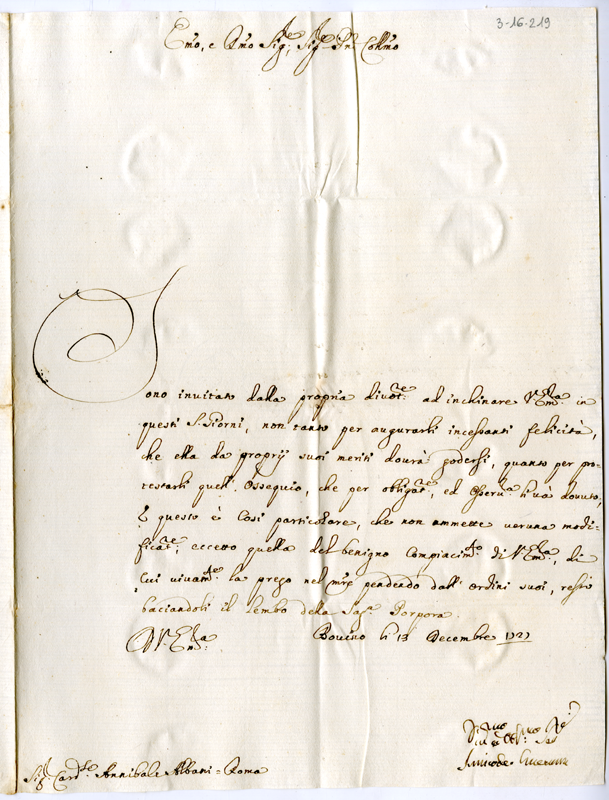 3-16-219
Emo, e Rmo Sig.re, Sig.re Pne Collmo
Sono invitato dalla propria divot.ne ad inchinare V. Em.za in
questi S. Giorni, non tanto per augurarli incessanti felicità,
che ella da proprij suoi meriti dourà godersi, quanto per pro-
testarli quell'Ossequio, che per obligat.ne, ed Osseru.za li uà douuto,
E questo è Così particolare, che non ammette veruna modi-
ficat.ne; eccetto quella del benigno Compiacim.to di V. Em.za, di
Cui uiuam.te la prego nel m.re pendendo dall'ordini suoi, resto
baciandoli il Lembo della Sag.a Porpora.
D V. Em.za Bovino li 13 Decembre 1727
Sig.r Card.le Annibale Albani = Roma